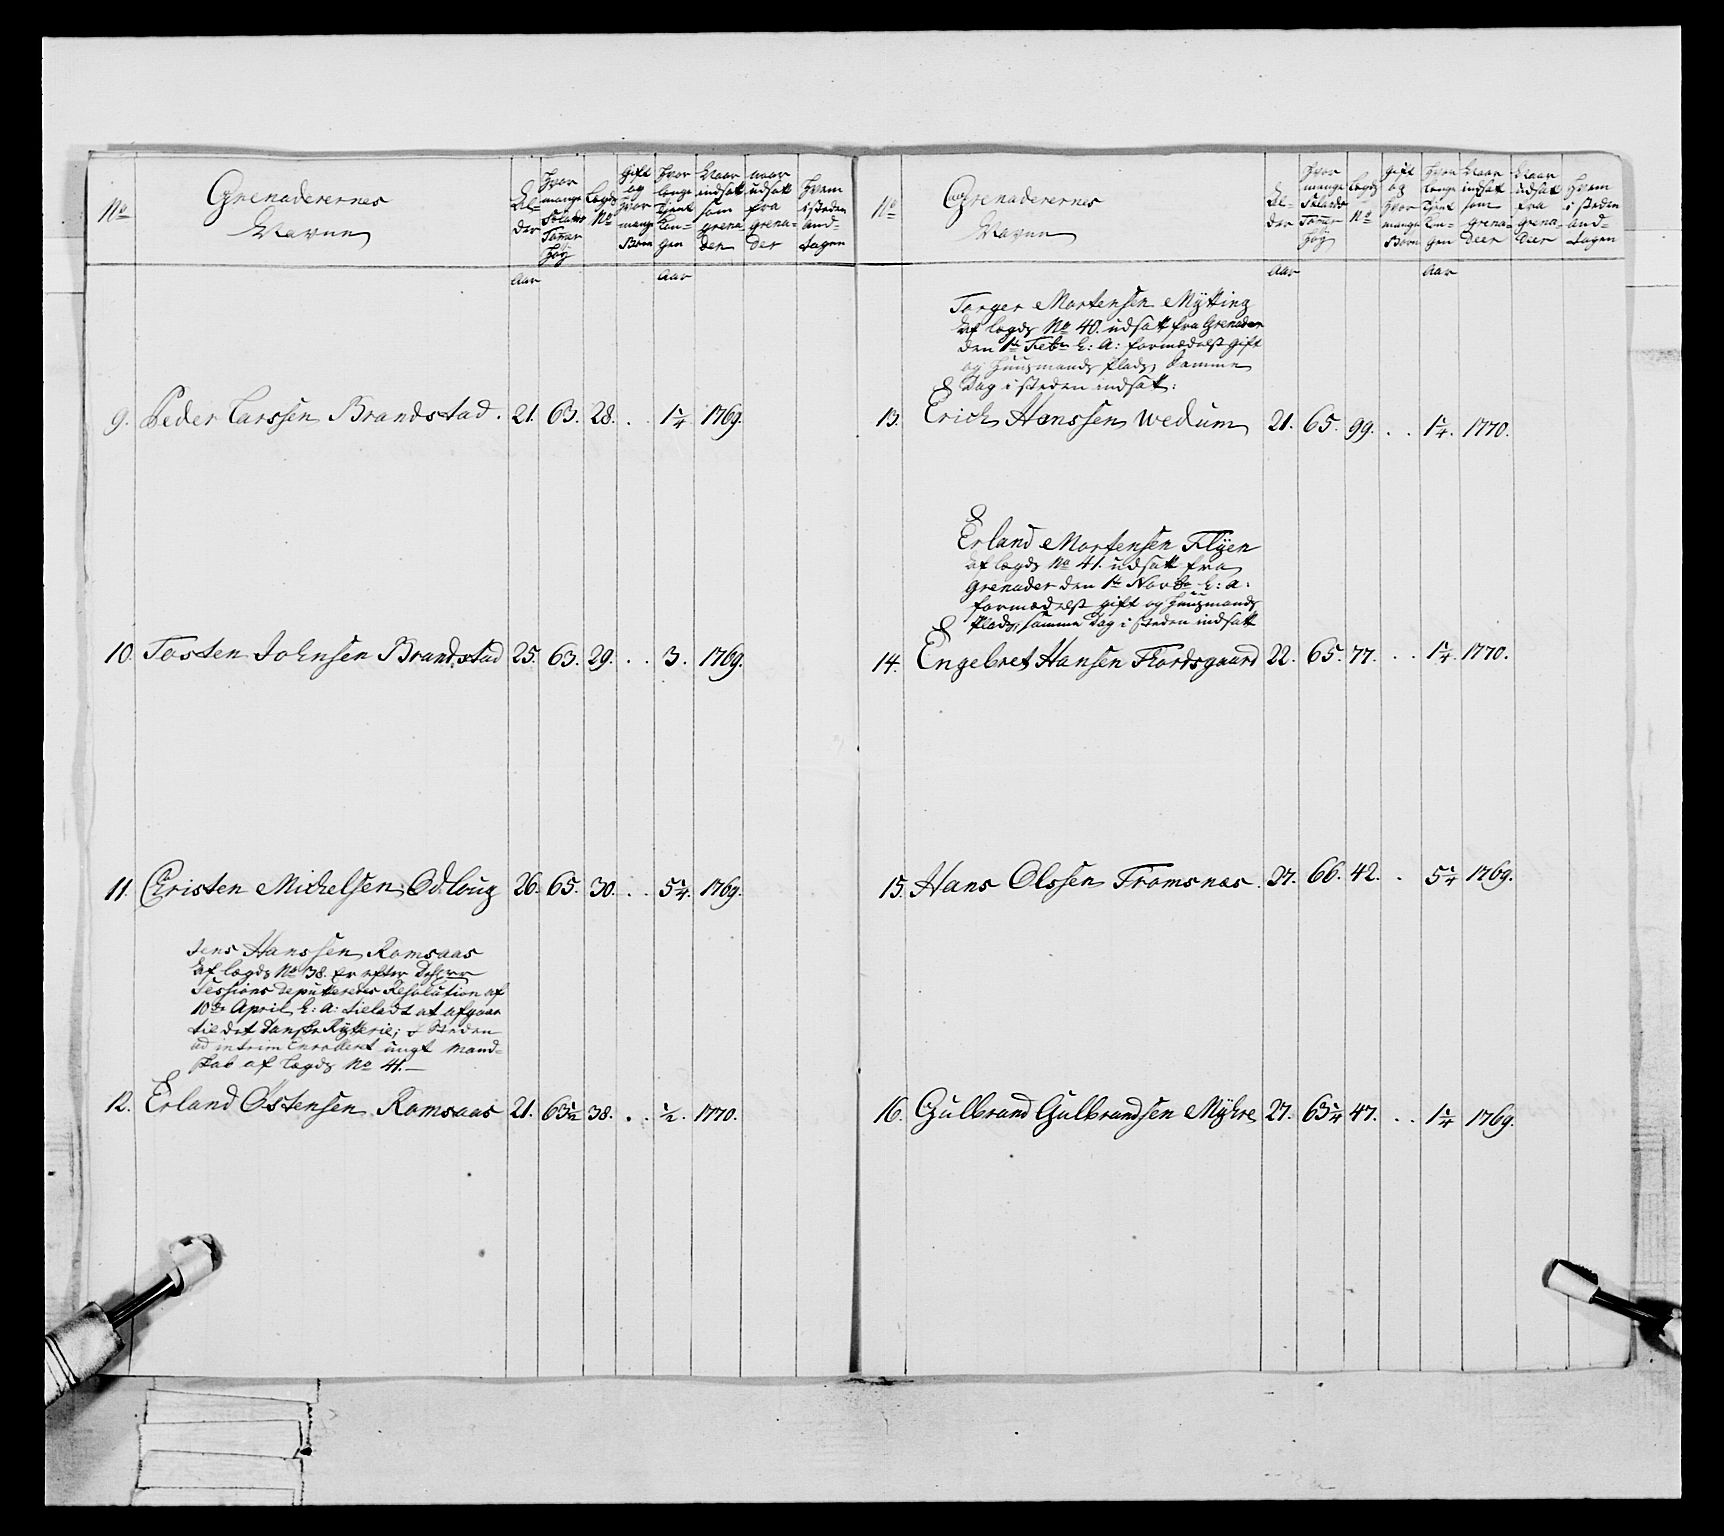 No
Grenaderernes
Navne
Al-
der
Hvor
mange
Solands
Tomer
høy
Lægds
No
Gift
og
Hvor
mange
Børn
Hvor
længe
tjent
Kon-
gen
Naar
indsatt
som
grena
der
naar
udsatt
fra
grena-
der
Hvem
i steden
and-
tagen
Aar
Aar
9. Peder Larssen Brandstad. 21. 63. 28. . . 1 1/4 1769.
10. Tosten Johnsen Brandstad 25. 63. 29. . . 3. 1769.
11. Christen Michelsen Odloug 26. 65. 30. . . 5 1/4. 1769.
Jens Hanssen Ramsaas
Af lægds No 38. er efter
Sessions deputeredes Resolution af
10de April h: a: tieladt at afgaae
til det Danske Rytterie; i Steden
ad intrim Enrolleret ungt Mand-
skab af Lægds No 41.
12. Erland Østensen Ramsaas 21. 63 1/2 38. . . 1/2. 1770.
No
Grenaderernes
Navne
Al-
der
Hvor
mange
Solands
Tomer
høy
Lægds
No
Gift
og
Hvor
mange
Børn
Hvor
længe
tjent
Kon-
gen
Naar
indsat
som
grena-
deer
Naar
udsat
fra
grena-
deer
Hvem
i steden
and-
tagen
Aar
Aar
Torger Mortensen Mÿtting
Af lægds No 40. udsatt fra Grenader
den 1te Febr h: a: formedelst gift
og Huusmands plads, samme
Dag i steden indsat:
13. Erich Hanssen Wedum 21. 65. 99. . . 1 1/4. 1770.
Erland Mortensen Flÿen
Af lægds No 41. udsatt fra
Grenader den 1te Novbr h: a:
formedelst gift og Huusmands
plads, samme Dag i steden indsatt
14. Engebret Hansen Fiordsgaard 22. 65. 77. . . 1 1/4. 1770.
15. Hans Olssen Tromsnæs. 27. 66. 42. . 5 1/4 1769.
16. Gulbrand Gulbrandsen Mÿhre 27. 63 1/4 47. . . 1 1/4 1769.